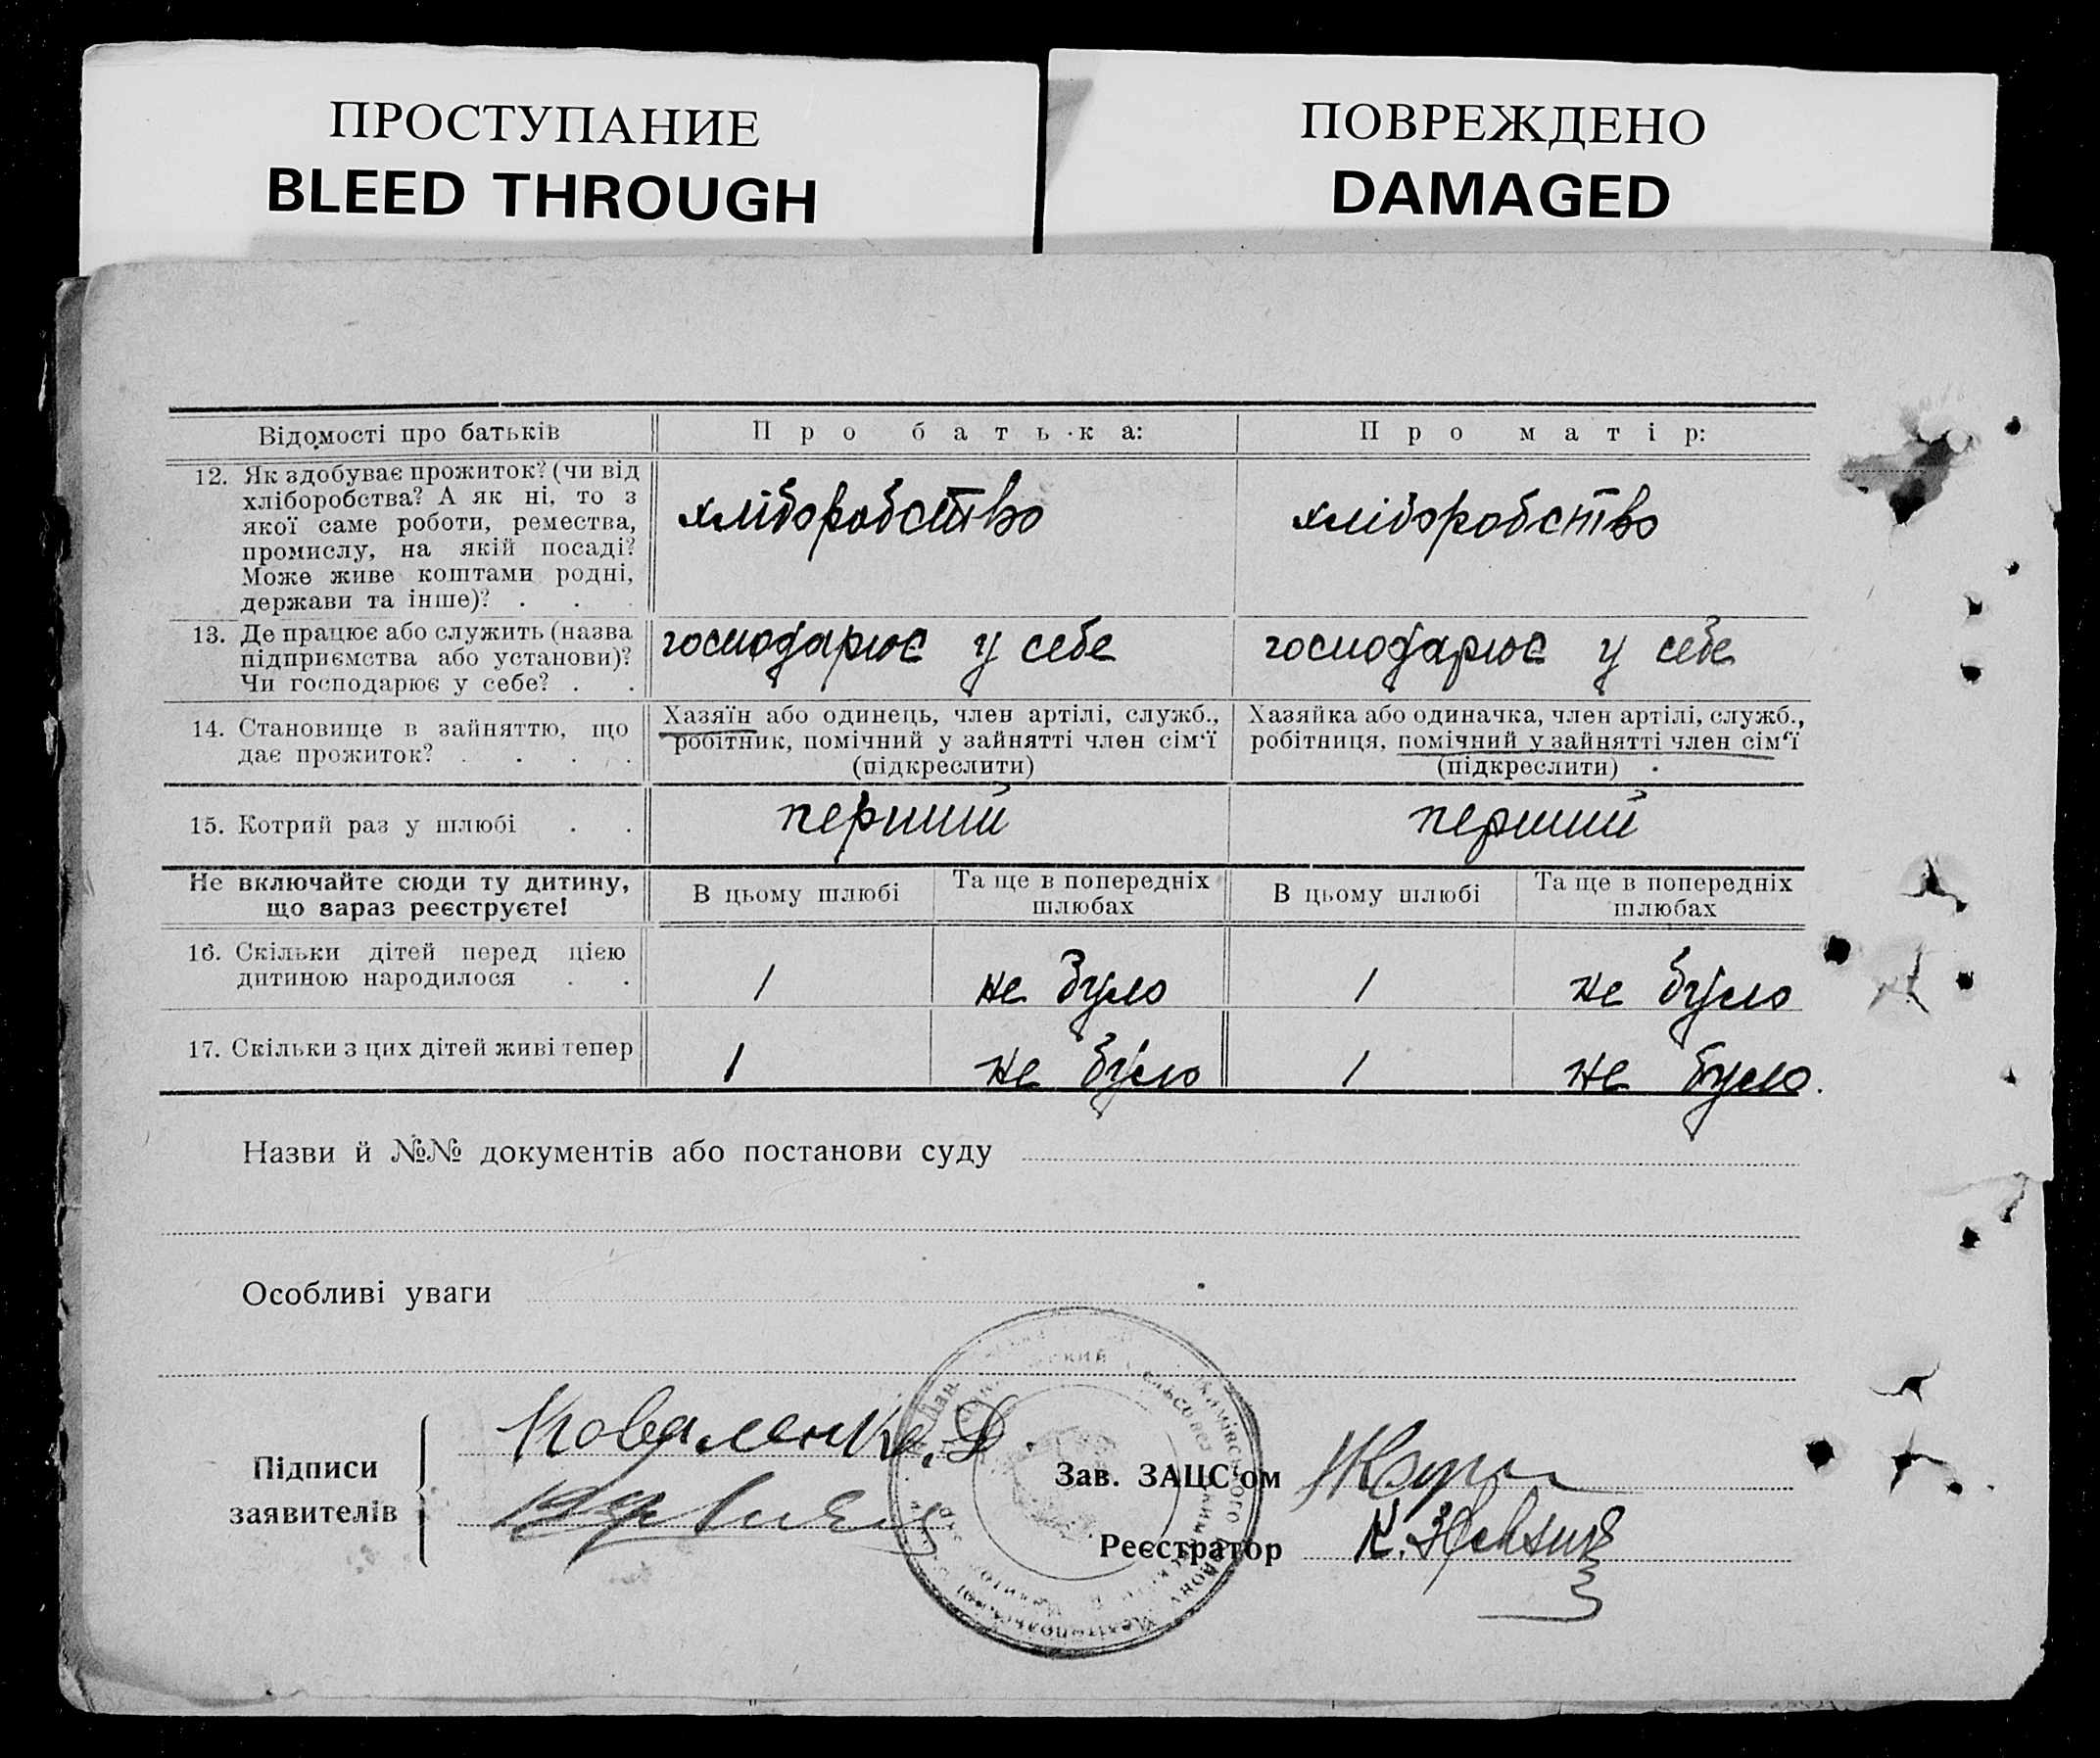 ПРОСТУПАНИЕ
BLEED THROUGH
ПОВРЕЖДЕНО
DAMAGED
Відомості про батьків
Про батька:
Про матір:
12. Як здобуває прожиток? (чи від
хліборобства? А як ні, то з
якої саме роботи, ремества,
промислу, на якій посаді?
Може живе коштами родні,
держави та інше)? . .
хліборобство
хліборобство
13. Де працює або служить (назва
підприємства або установи)?
Чи господарює у себе? . .
господарює у себе
господарює у себе
14. Становище в зайняттю, що
дає прожиток? . . . .
Хазяїн або одинець, член артілі, служб.,
робітник, помічний у зайнятті член сім‘ї
(підкреслити)
Хазяйка або одиначка, член артілі, служб.,
робітниця, помічний у зайнятті член сім‘ї
(підкреслити)
15. Котрий раз у шлюбі . .
перший
перший
Не включайте сюди ту дитину,
що зараз реєструєте!
В цьому шлюбі
Та ще в попередніх
шлюбах
В цьому шлюбі
Та ще в попередніх
шлюбах
16. Скільки дітей перед цією
дитиною народилося . .
1
не було
1
не було
17. Скільки з цих дітей живі тепер
1
не було
1
не було.
Назви й №№ документів або постанови суду
Особливі уваги
Підписи
заявителів
Коваленко. Д
Зав. ЗАЦС‘ом
Реєстратор
К.